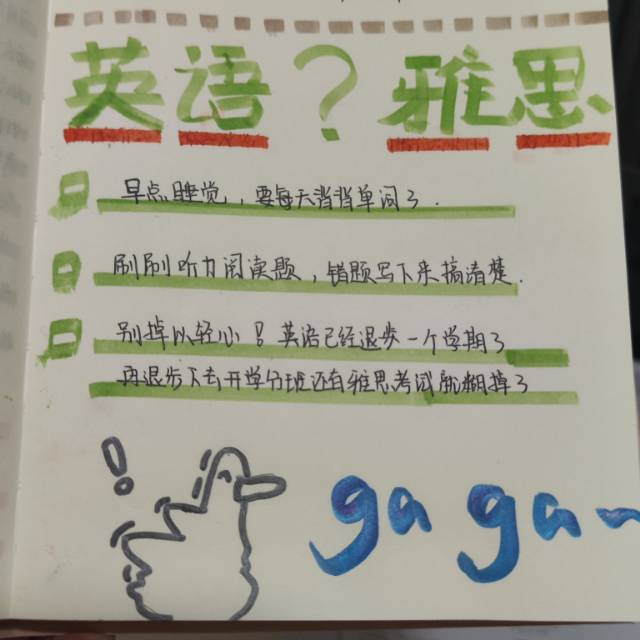 英语？雅思
早点睡觉，要每天背背单词了.
刷刷听力阅读题，错题写下来搞清楚.
别掉以轻心！英语已经退步一个学期了
再退步下去开学分班还有雅思考试就糊掉了
!
ga ga~